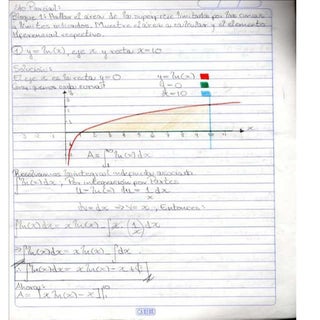 4to Parcial:
Bloque 1: Hallar el área de la superficie limitada por las curvas
y límites indicados. Muestre el área a calcular y el elemento
diferencial respectivo.
① y = ln(x), eje x y recta x=10
Solución:
El eje x es la recta y=0
y = ln(x)
y = 0
x = 10
A = ∫ ln(x) dx
Resolvamos la integral indefinida asociada
∫ ln(x) dx, Por integración por Partes
u = ln(x) du = 1/x dx
dv = dx → v = x, Entonces:
∫ ln(x) dx = x ln(x) - ∫ x · (1/x) dx
⇒ ∫ ln(x) dx = x ln(x) - ∫ dx
∫ ln(x) dx = x ln(x) - x
Ahora:
A = [x ln(x) - x]